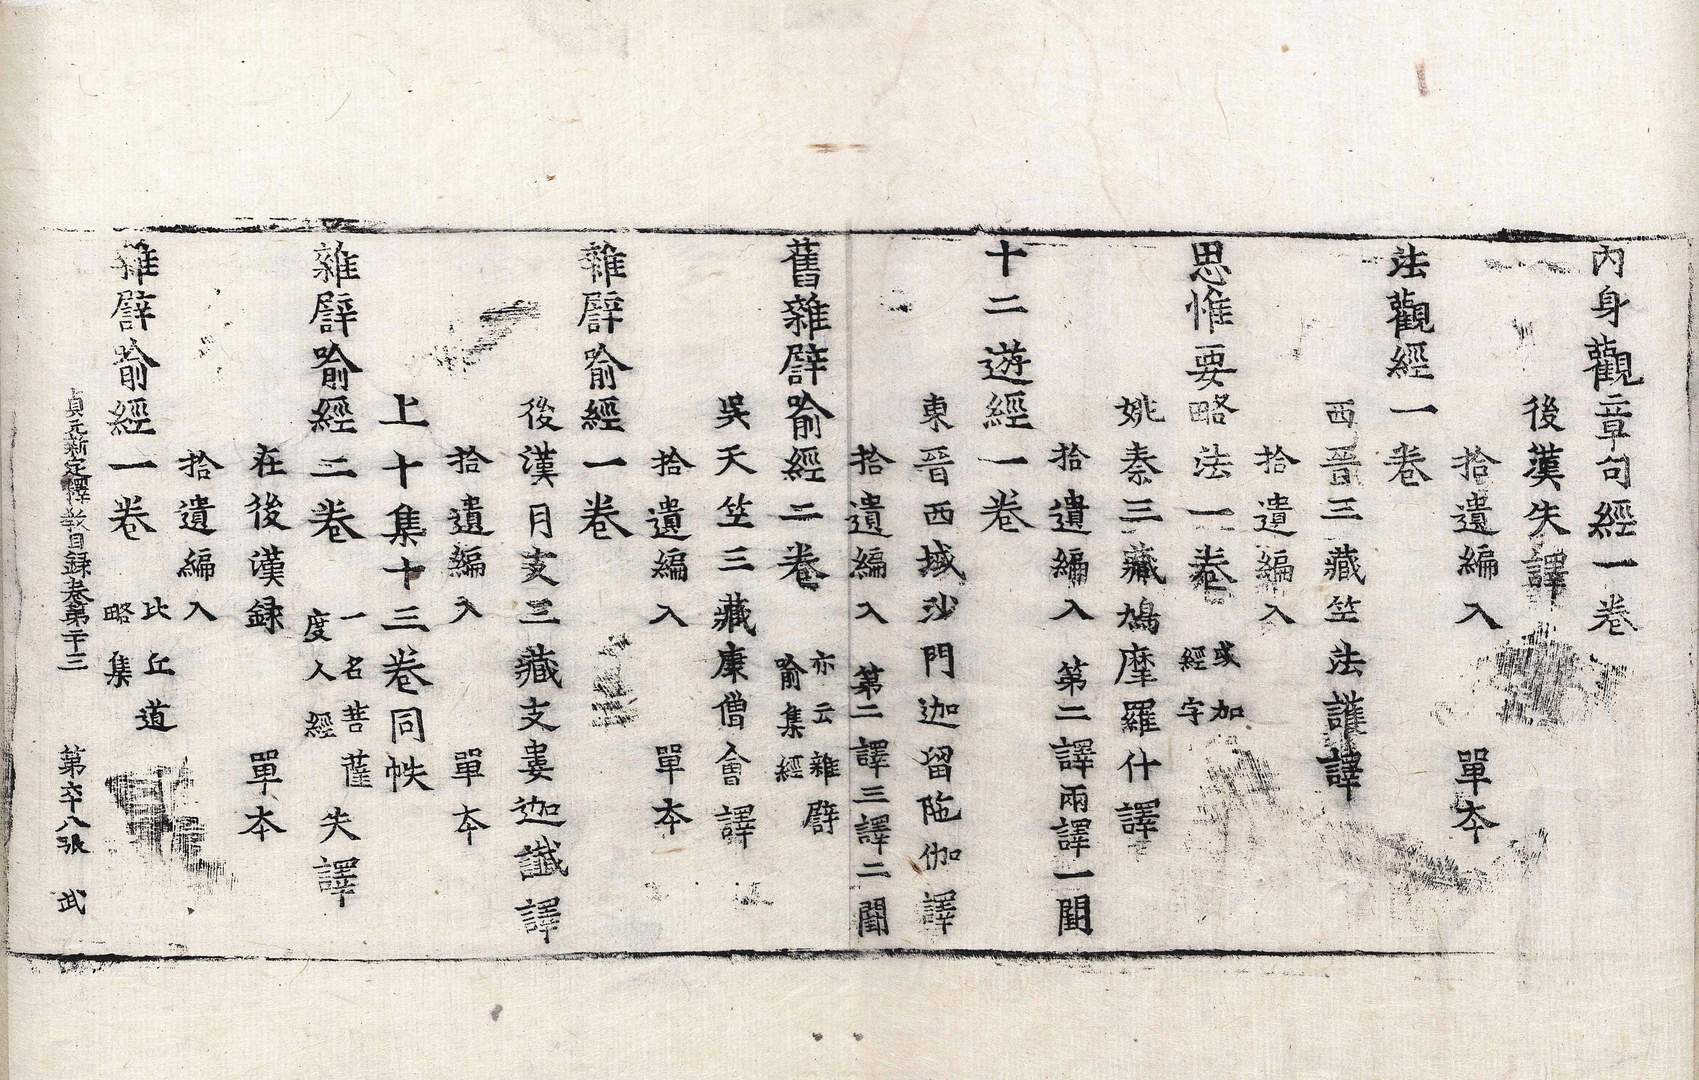 內身觀章句經一卷
後漢失譯
拾遺編入 單本
法觀經一卷
西晉三藏竺法護譯
拾遺編入
思惟要略法一卷 或加經字
姚秦三藏鳩摩羅什譯
拾遺編入 第二譯兩譯一闕
十二遊經一卷
東晉西域沙門迦留陁伽譯
拾遺編入 第二譯三譯二闕
舊雜譬喻經二卷 亦云雜譬喻集經
吳天竺三藏康僧會譯
拾遺編入 單本
雜譬喻經一卷
後漢月支三藏支婁迦讖譯
拾遺編入 單本
上十集十三卷同帙
雜譬喻經二卷 一名菩薩度人經 失譯
在後漢録 單本
拾遺編入
雜譬喻經一卷 比丘道略集
貞元新定釋教目録卷第二十三 第六十八張 武